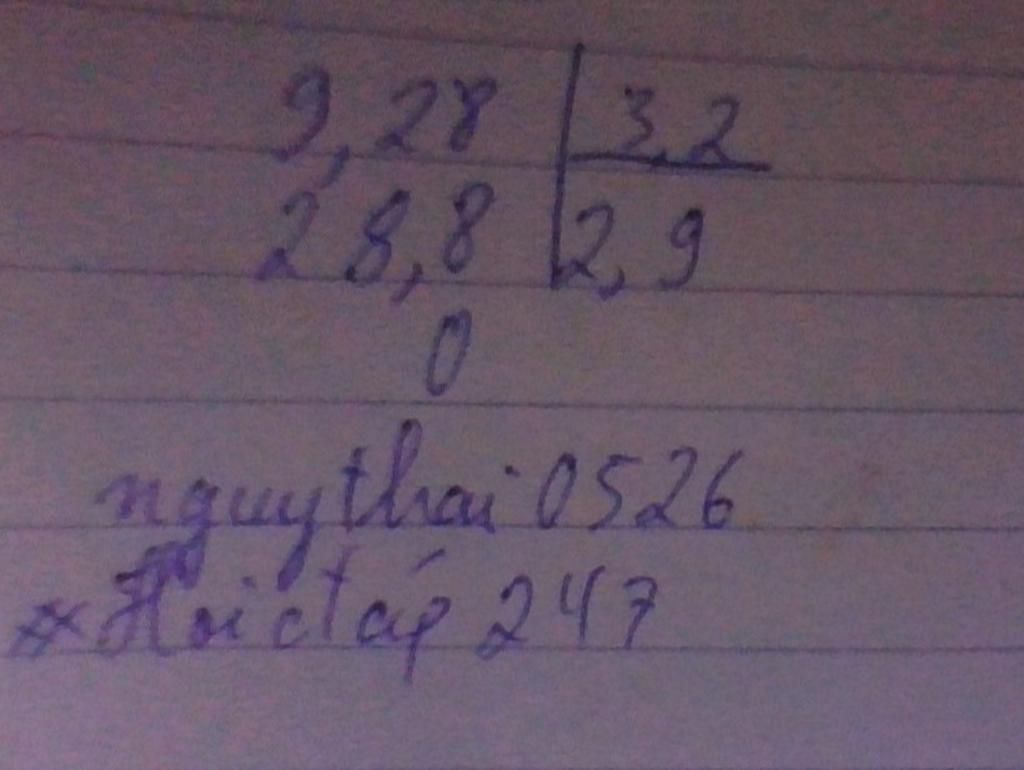 9,28 3,2
28,8 2,9
0
nguythai0526
#Hoidap247